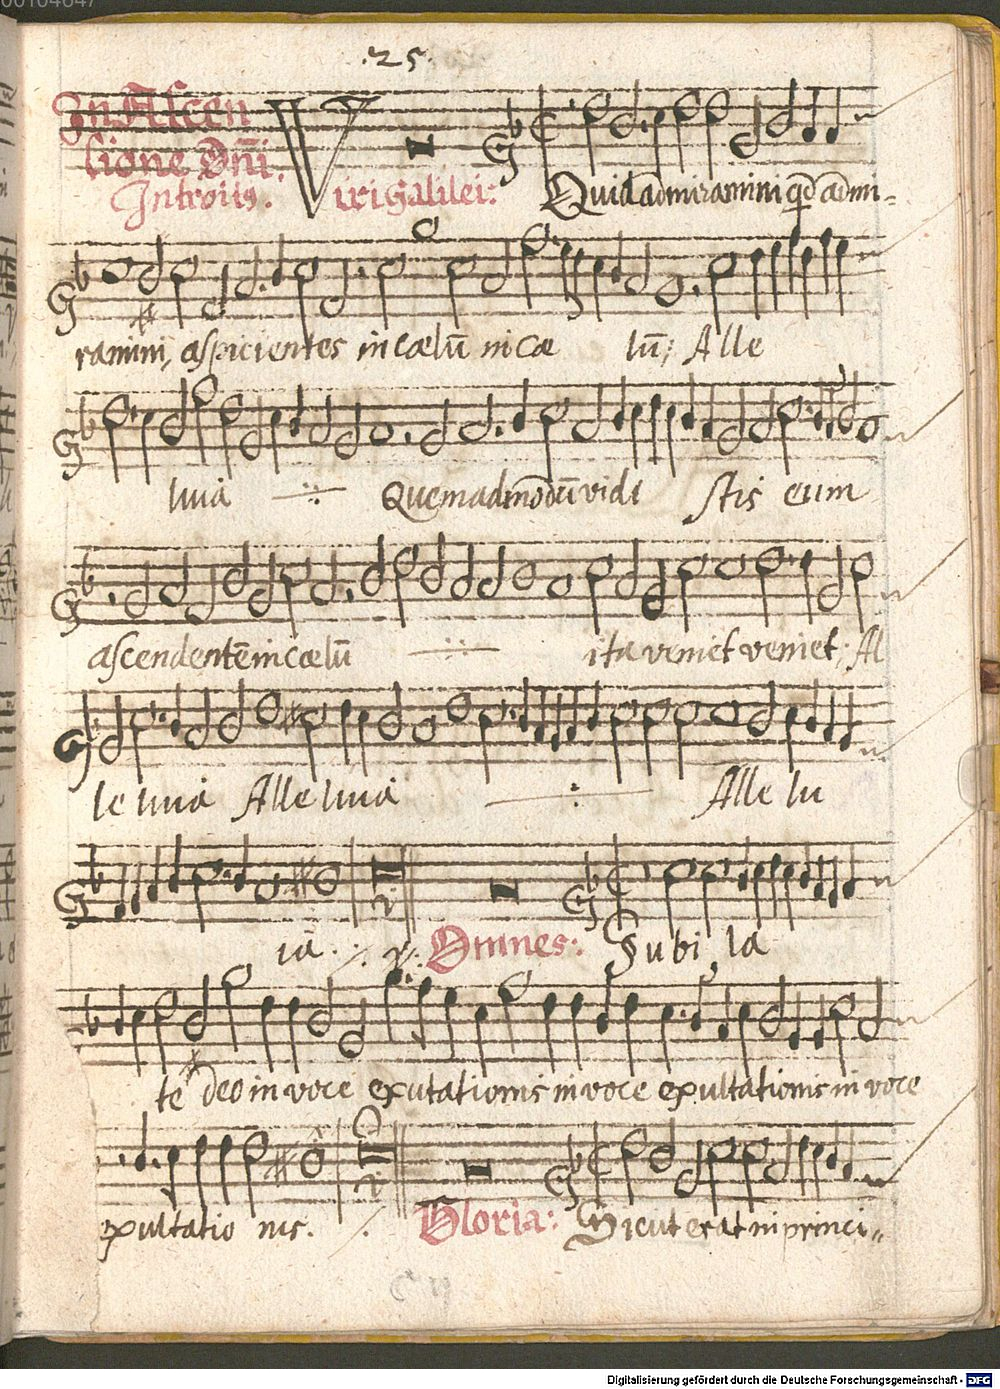 00104647
.25.
In Ascen
sione Dn̄i.
Introitus. Viri galilei: Quid admiramini qd̄ admi-
ramini, aspicientes in cœlū in cœ lū; Alle
luia ·/· Quemadmodū vidi stis eum
ascendentē in cœlū ·/· ita veniet veniet; Al
le luia Alle luia ·/· Alle lu
ia. ·/· ℣. Omnes: Iubi la
te deo in voce exutationis in voce exultationis in voce
exultatio nis. ·/· Gloria: Sicut erat in princi-
Digitalisierung gefördert durch die Deutsche Forschungsgemeinschaft - DFG